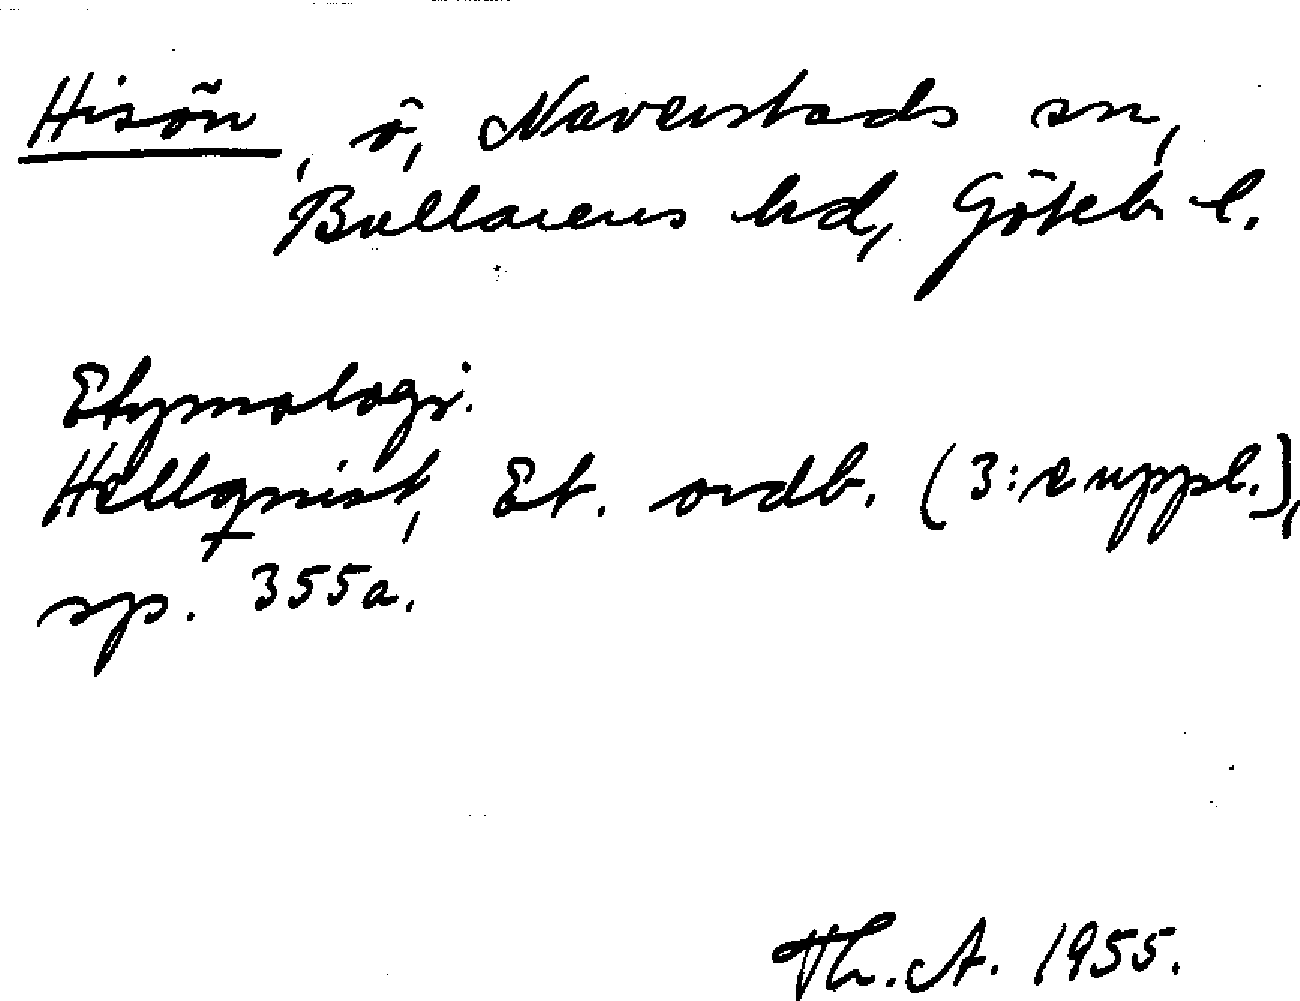 Hisön, ö, Naverstads sn,
Bullarens hd, Göteb. l.
Etymologi.
Hellquist, Et. ordb. (3:e uppl.),
sp. 355a.
Th. A. 1955.